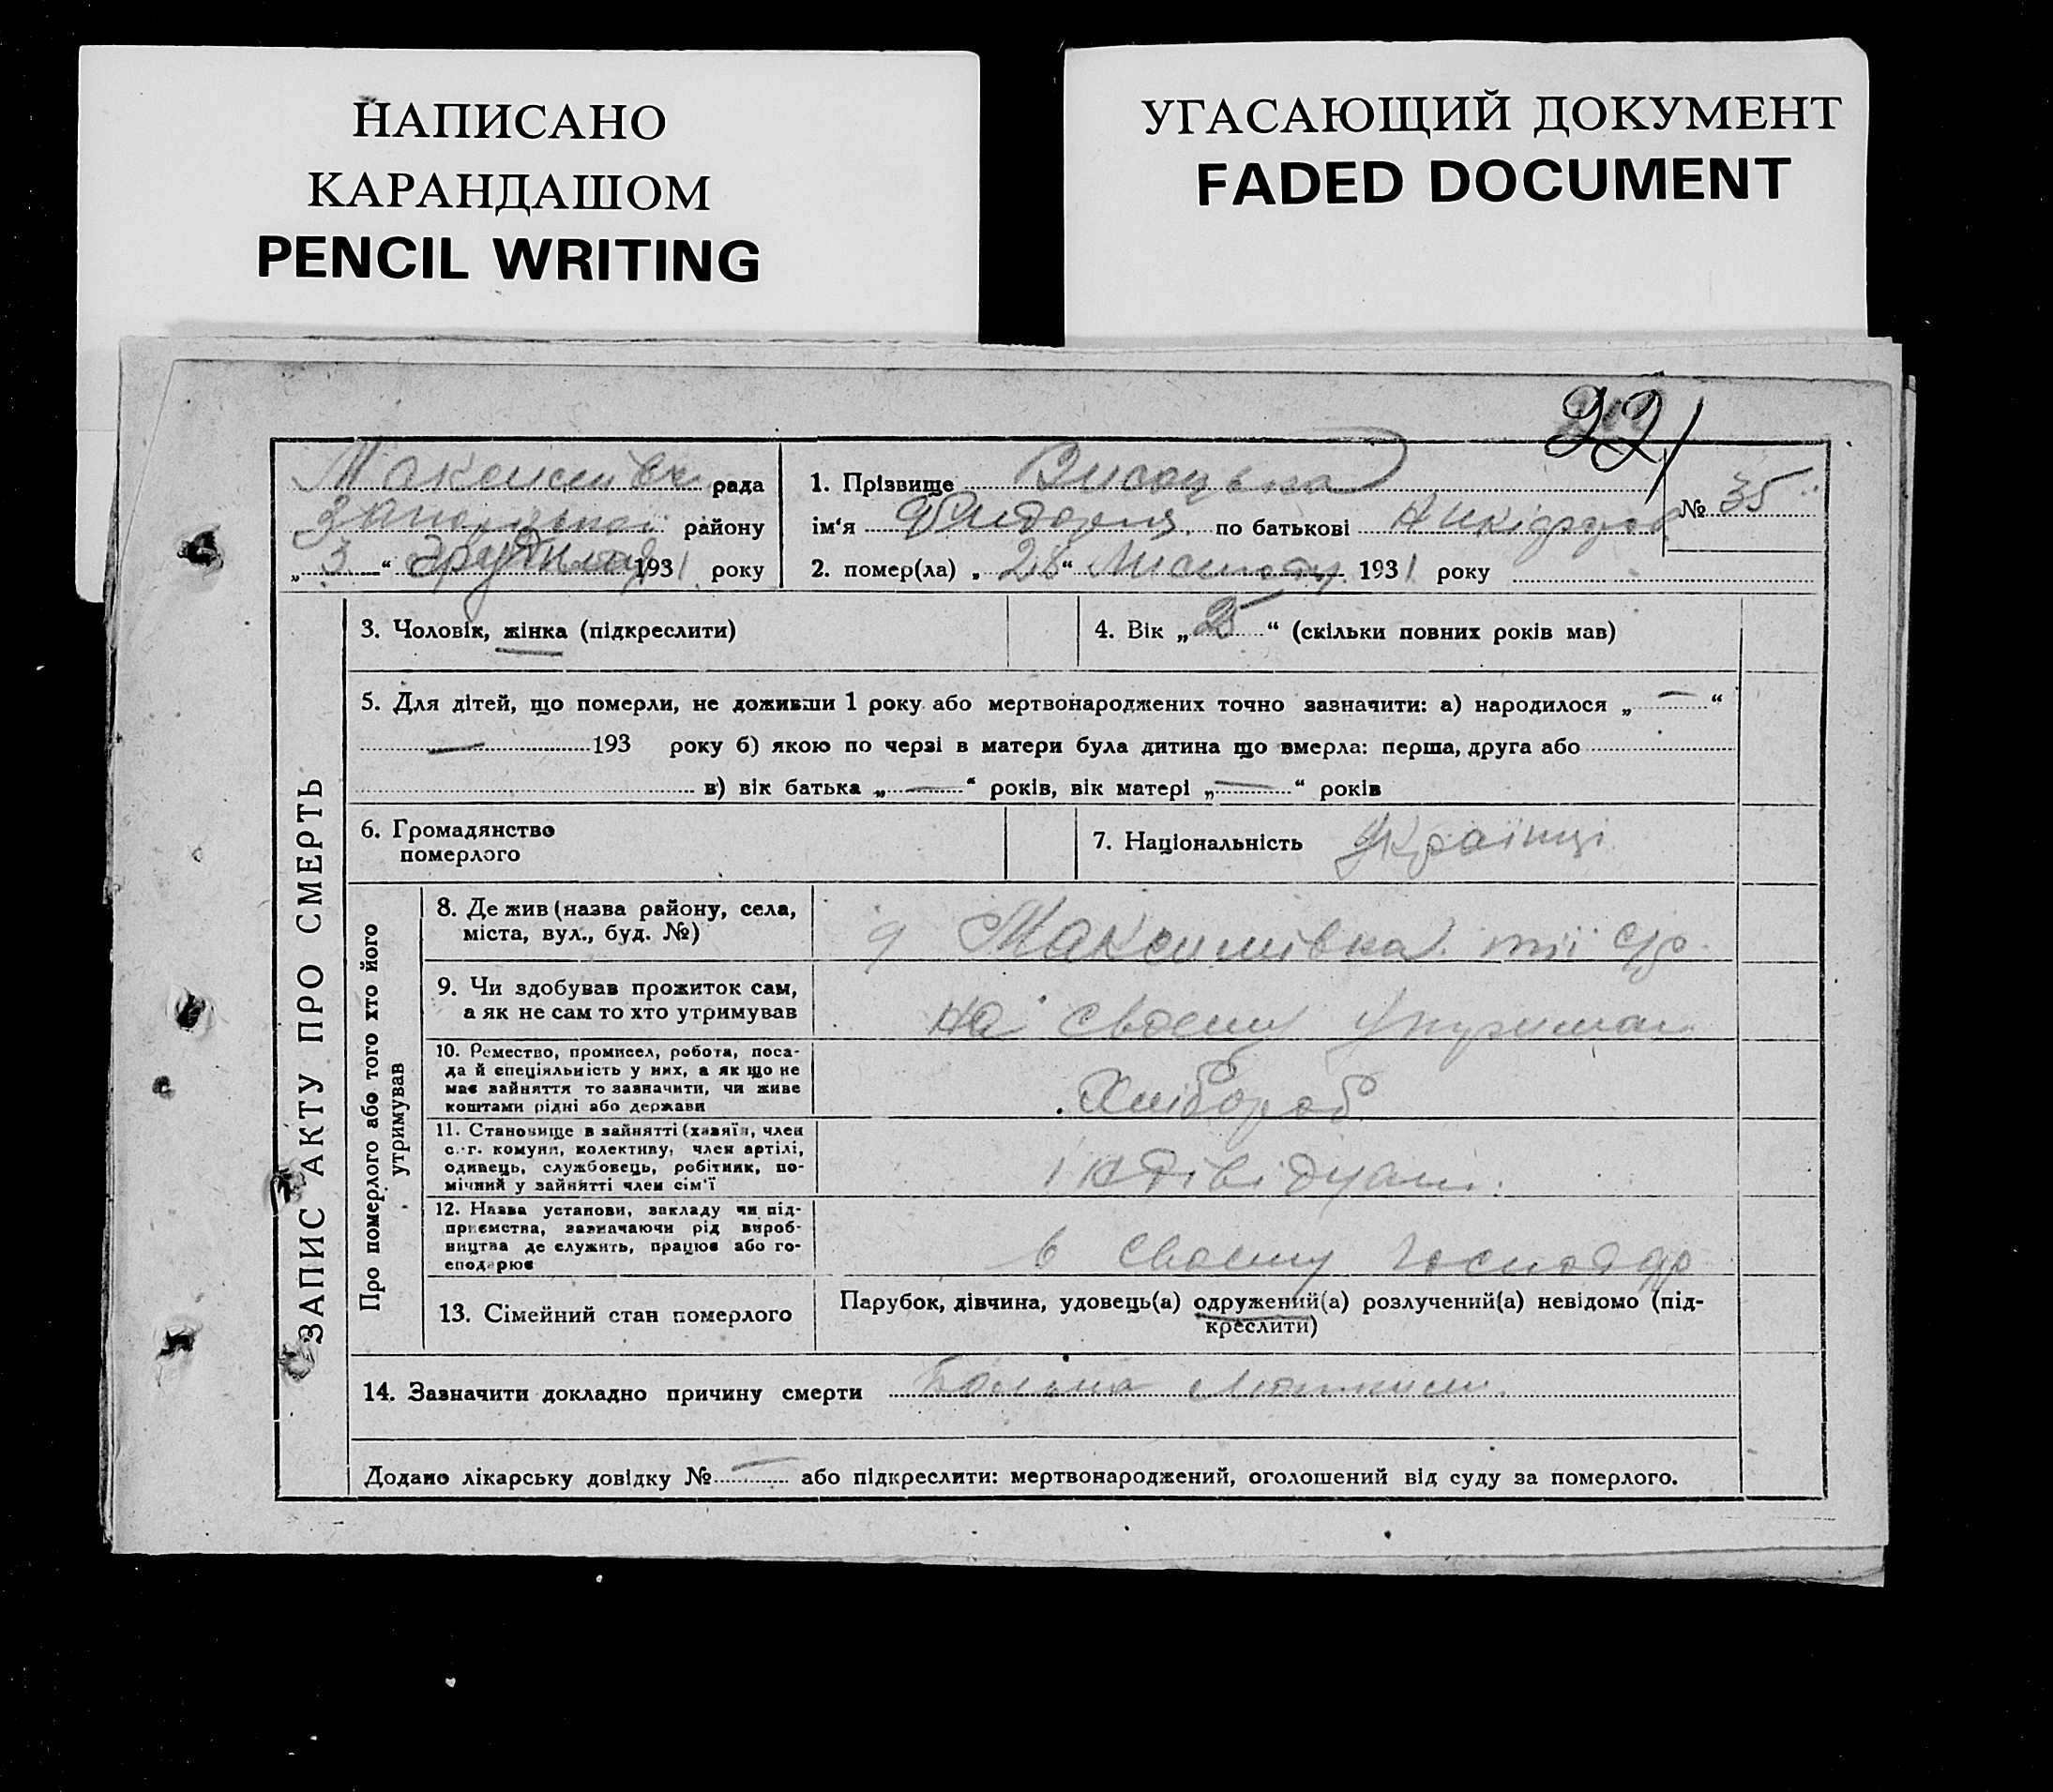 НАПИСАНО
КАРАНДАШОМ
PENCIL WRITING
УГАСАЮЩИЙ ДОКУМЕНТ
FADED DOCUMENT
221
рада
району
„ 3 “ 1931 року
1. Прізвище Висоцька
ім'я по батькові
2. помер(ла) „ 28 “ Листопа 1931 року
№ 35
ЗАПИС АКТУ ПРО СМЕРТЬ
3. Чоловік, жінка (підкреслити)
4. Вік „ 25 “ (скільки повних років мав)
5. Для дітей, що померли, не доживши 1 року або мертвонароджених точно зазначити: а) народилося „ — “
— 193 року б) якою по черзі в матери була дитина що вмерла: перша, друга або
в) вік батька „ — “ років, вік матері „ — “ років
6. Громадянство
померлого
7. Національність Українці
Про померлого або того хто його
утримував
8. Де жив (назва району, села,
міста, вул., буд. №)
Максимівка
9. Чи здобував прожиток сам,
а як не сам то хто утримував
на своєму
10. Ремество, промисел, робота, поса-
да й спеціяльність у них, а як що не
має зайняття то зазначити, чи живе
коштами рідні або держави
Хлібороб
11. Становище в зайнятті (хазяїн, член
с.-г. комуни, колективу, член артілі,
одинець, службовець, робітник, по-
мічний у зайнятті член сім'ї
індівідуал.
12. Назва установи, закладу чи під-
приємства, зазначаючи рід вироб-
ництва де служить, працює або го-
сподарює
в своєму господар
13. Сімейний стан померлого
Парубок, дівчина, удовець(а) одружений(а) розлучений(а) невідомо (під-
креслити)
14. Зазначити докладно причину смерти
Додано лікарську довідку № — або підкреслити: мертвонароджений, оголошений від суду за померлого.